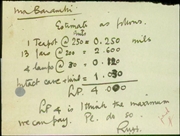 Mr Baramki
Estimate as follows.
1 Teapot @ 250 = 0.250 mils
13 jars @ 200 = 2.600
4 lamps @ 30 = 0.120
1.030
LP. 4.000
LP 4 is I think the maximum
we can pay. Pl. do so